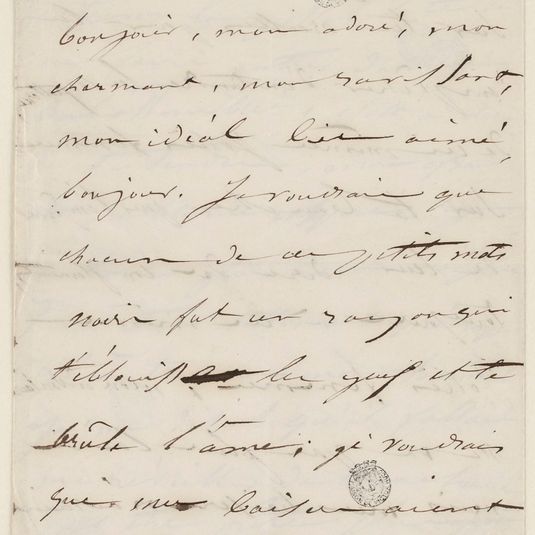 bonjour, mon adoré, mon
charmant, mon ravissant,
mon idéal bien aimé,
bonjour. Je voudrais que
chacun de ces petits mots
noirs fut un rayon qui
t'éblouisse les yeux et te
brûle l'âme, je voudrais
que mes baisers aient